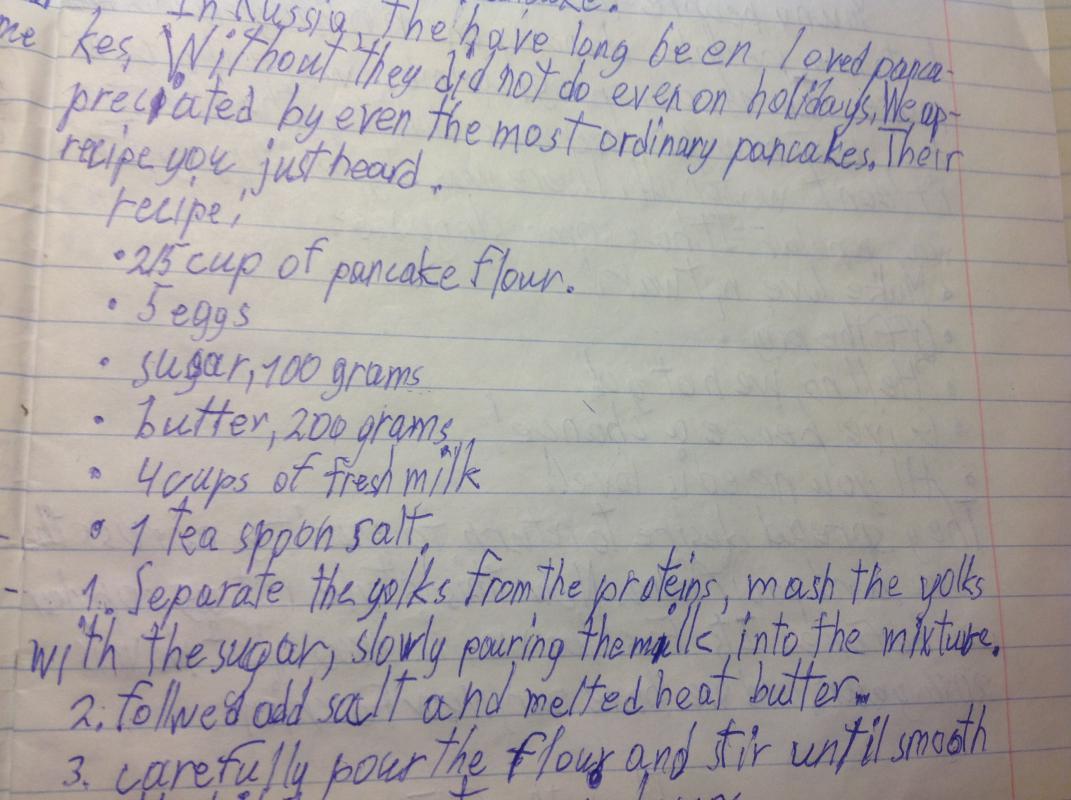 In Russia, The have long been loved panca-
kes, Without they did not do even on holidays, We ap-
preciated by even the most ordinary pancakes. Their
recipe you just heard.
recipe;
• 2,5 cup of pancake flour.
• 5 eggs
• sugar, 100 grams
• butter, 200 grams
• 4 cups of fresh milk
• 1 tea sppon salt.
1. Separate the yolks from the proteins, mash the yolks
with the sugar, slowly pouring the milk into the mixture.
2. follwed add salt and melted heat butter.
3. carefully pour the flour and stir until smooth